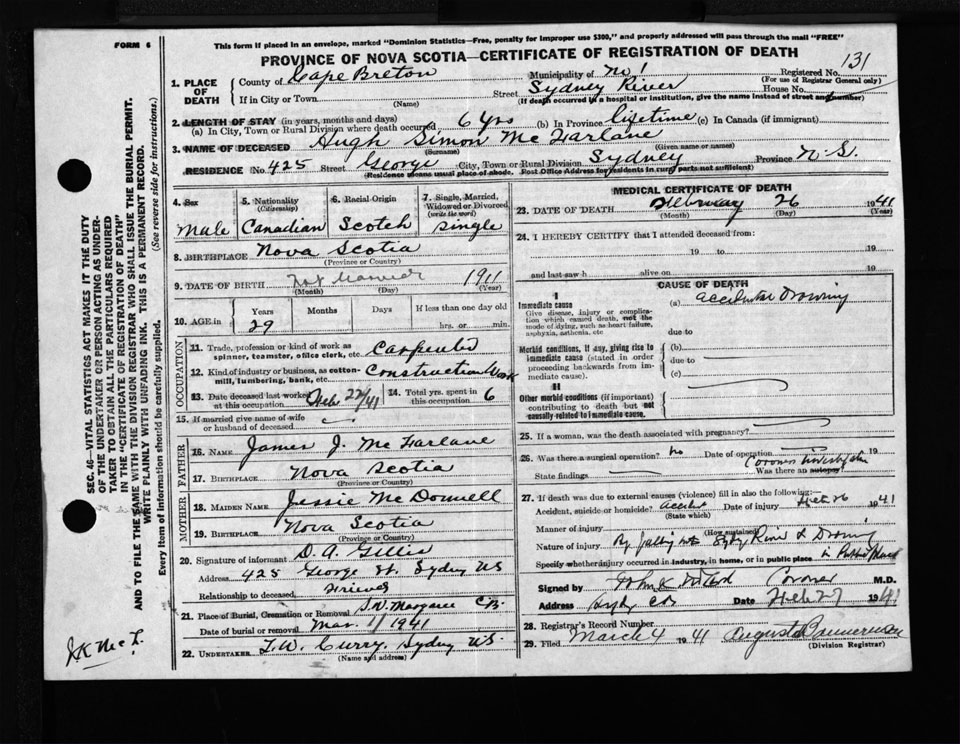 FORM 6
This form if placed in an envelope, marked "Dominion Statistics—Free, penalty for improper use $300," and properly addressed will pass through the mail "FREE"
PROVINCE OF NOVA SCOTIA—CERTIFICATE OF REGISTRATION OF DEATH
Registered No. 131
(For use of Registrar General only)
1. PLACE OF DEATH
County of Cape Breton Municipality of No 1
If in City or Town Street Sydney River House No.
(Name) (If death occurred in a hospital or institution, give the name instead of street and number)
2. LENGTH OF STAY (in years, months and days)
(a) In City, Town or Rural Division where death occurred 6 yrs (b) In Province lifetime (c) In Canada (if immigrant)
3. NAME OF DECEASED Hugh Simon McFarlane
(Surname) (Given name or names)
RESIDENCE No 425 Street George City, Town or Rural Division Sydney Province N.S.
(Residence means usual place of abode. Post Office Address for residents in rural parts not sufficient)
4. Sex
Male
5. Nationality
(Citizenship)
Canadian
6. Racial Origin
Scotch
7. Single, Married, Widowed or Divorced
(write the word)
Single
8. BIRTHPLACE Nova Scotia
(Province or Country)
9. DATE OF BIRTH 1911
(Month) (Day) (Year)
10. AGE in
Years
29
Months
Days
If less than one day old
hrs. or min.
OCCUPATION
11. Trade, profession or kind of work as spinner, teamster, office clerk, etc. Carpenter
12. Kind of industry or business, as cotton-mill, lumbering, bank, etc. Construction Work
13. Date deceased last worked at this occupation Feb 22/41
14. Total yrs. spent in this occupation 6
15. If married give name of wife or husband of deceased
FATHER
16. NAME James J. McFarlane
17. BIRTHPLACE Nova Scotia
(Province or Country)
MOTHER
18. MAIDEN NAME Jessie McDonnell
19. BIRTHPLACE Nova Scotia
(Province or Country)
20. Signature of informant D. A. Gillis
Address 425 George St. Sydney NS
Relationship to deceased Friend
21. Place of Burial, Cremation or Removal S.W. Margaree C.B.
Date of burial or removal Mar. 1/1941
22. UNDERTAKER T.W. Curry, Sydney NS.
(Name and address)
MEDICAL CERTIFICATE OF DEATH
23. DATE OF DEATH February 26 1941
(Month) (Day) (Year)
24. I HEREBY CERTIFY that I attended deceased from:
19 to 19
and last saw h alive on 19
CAUSE OF DEATH
I
Immediate cause
Give disease, injury or complication which caused death, not the mode of dying, such as heart failure, asphyxia, asthenia, etc
(a) Accidental Drowning
due to
Morbid conditions, if any, giving rise to immediate cause (stated in order proceeding backwards from immediate cause).
(b)
due to
(c)
II
Other morbid conditions (if important) contributing to death but not causally related to immediate cause.
25. If a woman, was the death associated with pregnancy?
26. Was there a surgical operation? No Date of operation 19
State findings Was there an autopsy Coroner Investigation
27. If death was due to external causes (violence) fill in also the following:
Accident, suicide or homicide? Accident Date of injury Feb 26 1941
(State which)
Manner of injury
(How sustained)
Nature of injury By falling into Sydney River & Drowning
Specify whether injury occurred in industry, in home, or in public place In Public Place
Signed by Coroner M.D.
Address Sydney CB Date Feb 27 1941
28. Registrar's Record Number
29. Filed March 4 1941 Augusta
(Division Registrar)
SEC. 46—VITAL STATISTICS ACT MAKES IT THE DUTY OF THE UNDERTAKER OR PERSON ACTING AS UNDERTAKER TO OBTAIN ALL THE PARTICULARS REQUIRED IN THE "CERTIFICATE OF REGISTRATION OF DEATH" AND TO FILE THE SAME WITH THE DIVISION REGISTRAR WHO SHALL ISSUE THE BURIAL PERMIT.
WRITE PLAINLY WITH UNFADING INK. THIS IS A PERMANENT RECORD.
Every item of information should be carefully supplied. (See reverse side for instructions.)